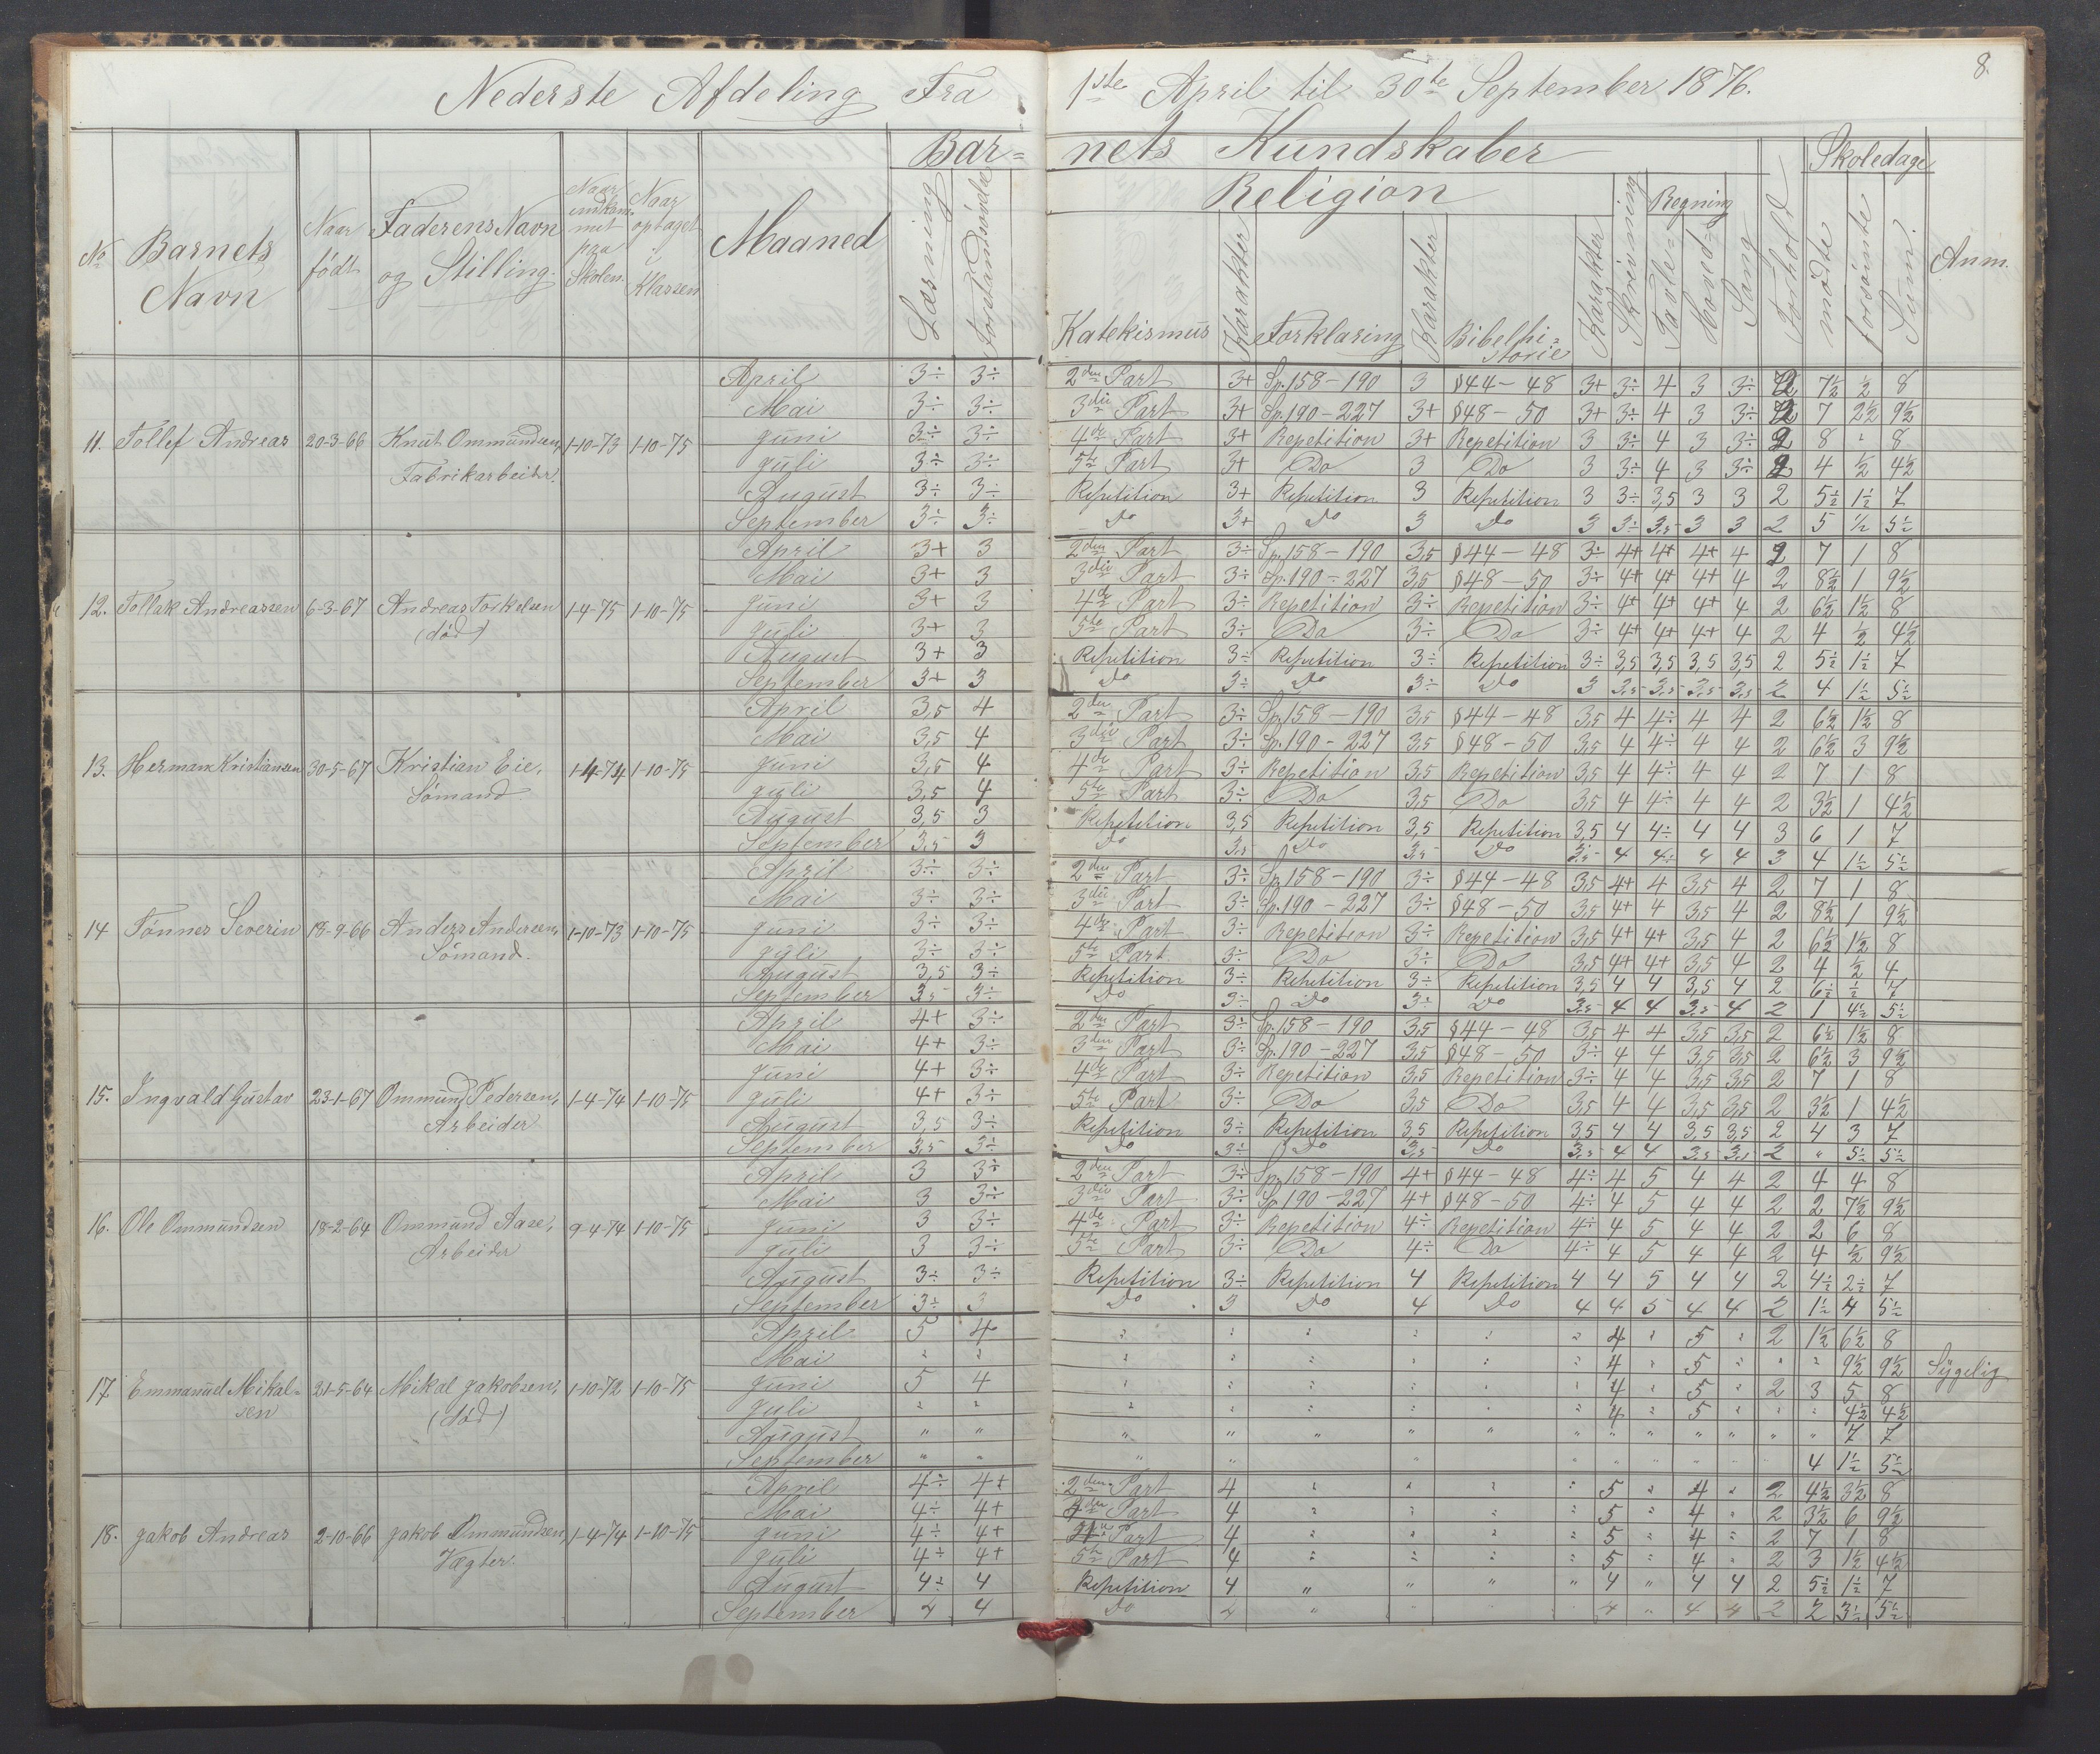 8.
Nederste Afdeling Fra 1ste April til 30te September 1876.
No
Barnets Navn
Naar født
Faderens Navn og Stilling.
Naar indkommet paa Skolen.
Naar optaget i Klassen
Maaned
Bar= nets Kundskaber
Læsning
Forstandsøvelse
Religion
Katekismus
Karakter
Forklaring
Karakter
Bibelhi=storie
Karakter
Skrivning
Regning
Tavle=
Hoved=
Sang
Forhold
Skoledage
mødte
forsømte
Sum.
Anm.
11. Tollef Andreas 20-3-66 Knut Ommundsen, Fabrikarbeider. 1-10-73 1-10-75
April 3÷ 3÷ 2den Part 3+ Sp. 158-190 3 §44-48 3+ 3÷ 4 3 3÷ 2 7½ ½ 8
Mai 3÷ 3÷ 3die Part 3+ Sp. 190-227 3+ §48-50 3+ 3÷ 4 3 3÷ 2 7 2½ 9½
Juni 3÷ 3÷ 4de Part 3+ Repetition 3+ Repetition 3 3÷ 4 3 3÷ 2 8 " 8
Juli 3÷ 3÷ 5te Part 3+ Do 3 Do 3 3÷ 4 3 3÷ 2 4 ½ 4½
August 3÷ 3÷ Repetition 3+ Repetition 3 Repetition 3 3÷ 3,5 3 3 2 5½ 1½ 7
September 3÷ 3÷ Do 3+ Do 3 Do 3 3÷ 3,5 3 3 2 5 ½ 5½
12. Tollak Andreassen 6-3-67 Andreas Torkelsen (død) 1-4-75 1-10-75
April 3+ 3 2den Part 3÷ Sp. 158-190 3,5 §44-48 3÷ 4+ 4+ 4+ 4 2 7 1 8
Mai 3+ 3 3die Part 3÷ Sp. 190-227 3,5 §48-50 3÷ 4+ 4+ 4+ 4 2 8½ 1 9½
Juni 3+ 3 4de Part 3÷ Repetition 3÷ Repetition 3÷ 4+ 4+ 4+ 4 2 6½ 1½ 8
Juli 3+ 3 5te Part 3÷ Do 3÷ Do 3÷ 4+ 4+ 4+ 4 2 4 ½ 4½
August 3+ 3 Repetition 3÷ Repetition 3÷ Repetition 3÷ 3,5 3,5 3,5 3,5 2 5½ 1½ 7
September 3+ 3 Do 3÷ Do 3÷ Do 3 3,5 3,5 3,5 3,5 2 4 1½ 5½
13. Herman Kristiansen 30-5-67 Kristian Eie, Sømand. 1-4-74 1-10-75
April 3,5 4 2den Part 3÷ Sp. 158-190 3,5 §44-48 3,5 4 4÷ 4 4 2 6½ 1½ 8
Mai 3,5 4 3die Part 3÷ Sp. 190-227 3,5 §48-50 3,5 4 4÷ 4 4 2 6½ 3 9½
Juni 3,5 4 4de Part 3÷ Repetition 3,5 Repetition 3,5 4 4÷ 4 4 2 7 1 8
Juli 3,5 4 5te Part 3÷ Do 3,5 Do 3,5 4 4÷ 4 4 2 3½ 1 4½
August 3,5 3 Repetition 3,5 Repetition 3,5 Repetition 3,5 4 4÷ 4 4 3 6 1 7
September 3,5 3 Do 3,5 Do 3,5 Do 3,5 4 4÷ 4 4 3 4 1½ 5½
14 Tønnes Severin 18-9-66 Anders Andersen, Sømand. 1-10-73 1-10-75
April 3÷ 3÷ 2den Part 3÷ Sp. 158-190 3÷ §44-48 3,5 4+ 4 3,5 4 2 7 1 8
Mai 3÷ 3÷ 3die Part 3÷ Sp. 190-227 3÷ §48-50 3,5 4+ 4 3,5 4 2 8½ 1 9½
Juni 3÷ 3÷ 4de Part 3÷ Repetition 3÷ Repetition 3,5 4+ 4+ 3,5 4 2 6½ 1½ 8
Juli 3÷ 3÷ 5te Part 3÷ Do 3÷ Do 3,5 4+ 4+ 3,5 4 2 4 ½ 4
August 3,5 3÷ Repetition 3÷ Repetition 3÷ Repetition 3,5 4 4 3,5 4 2 6½ ½ 7
September 3,5 3÷ Do 3÷ Do 3÷ Do 3,5 4 4 3,5 4 2 1 4½ 5½
15. Ingvald Gustav 23-1-67 Ommund Pedersen, Arbeider 1-4-74 1-10-75
April 4+ 3÷ 2den Part 3÷ Sp. 158-190 3,5 §44-48 3,5 4 4 3,5 3,5 2 6½ 1½ 8
Mai 4+ 3÷ 3den Part 3÷ Sp. 190-227 3,5 §48-50 3÷ 4 4 3,5 3,5 2 6½ 3 9½
Juni 4+ 3÷ 4de Part 3÷ Repetition 3,5 Repetition 3÷ 4 4 3,5 3,5 2 7 1 8
Juli 4+ 3÷ 5te Part 3÷ Do 3,5 Do 3,5 4 4 3,5 3,5 2 3½ 1 4½
August 3,5 3÷ Repetition 3÷ Repetition 3,5 Repetition 3,5 4 4 3,5 3,5 2 4 3 7
September 3,5 3÷ Do 3÷ Do 3,5 Do 3,5 4 4 3,5 3,5 2 " 5½ 5½
16. Ole Ommundsen 18-2-64 Ommund Aase, Arbeider 9-4-74 1-10-75
April 3 3÷ 2den Part 3÷ Sp. 158-190 4+ §44-48 4÷ 4 5 4 4 2 4 4 8
Mai 3 3÷ 3die Part 3÷ Sp. 190-227 4+ §48-50 4÷ 4 5 4 4 2 2 7½ 9½
Juni 3 3÷ 4de Part 3÷ Repetition 4÷ Repetition 4÷ 4 5 4 4 2 2 6 8
Juli 3 3÷ 5te Part 3÷ Do 4÷ Do 4÷ 4 5 4 4 2 4 ½ 9½
August 3÷ 3÷ Repetition 3÷ Repetition 4 Repetition 4 4 5 4 4 2 4½ 2½ 7
September 3÷ 3 Do 3 Do 4 Do 4 4 5 4 4 2 1½ 4 5½
17 Emmanuel Mikal=sen 21-5-64 Mikal Jakobsen, (død) 1-10-72 1-10-75
April 5 4 " " " " " " 4 " 5 " 2 1½ 6½ 8
Mai " " " " " " " " 4 " 5 " " " 9½ 9½ Sygelig
Juni 5 4 " " " " " " 4 " 5 " 2 3 5 8
Juli " " " " " " " " 4 " 5 " " " 4½ 4½
August " " " " " " " " " " " " " " 7 7
September " " " " " " " " " " " " " 4 1½ 5½
18. Jakob Andreas 2-10-66 Jakob Ommundsen, Vægter. 1-4-74 1-10-75
April 4÷ 4+ 2den Part 4 " " " " 5 " 4 " 2 4½ 3½ 8
Mai 4÷ 4+ Part 4 " " " " 5 " 4 " 2 3½ 6 9½
Juni 4÷ 4+ Part 4 " " " " 5 " 4 " 2 7 1 8
Juli 4÷ 4+ 5te Part 4 " " " " 5 " 4 " 2 3 1½ 4½
August 4÷ 4 Repetition 4 " " " " 4 " 4 4 2 5½ 1½ 7
September 4 4 Do 4 " " " " 4 " 4 4 2 2 3½ 5½